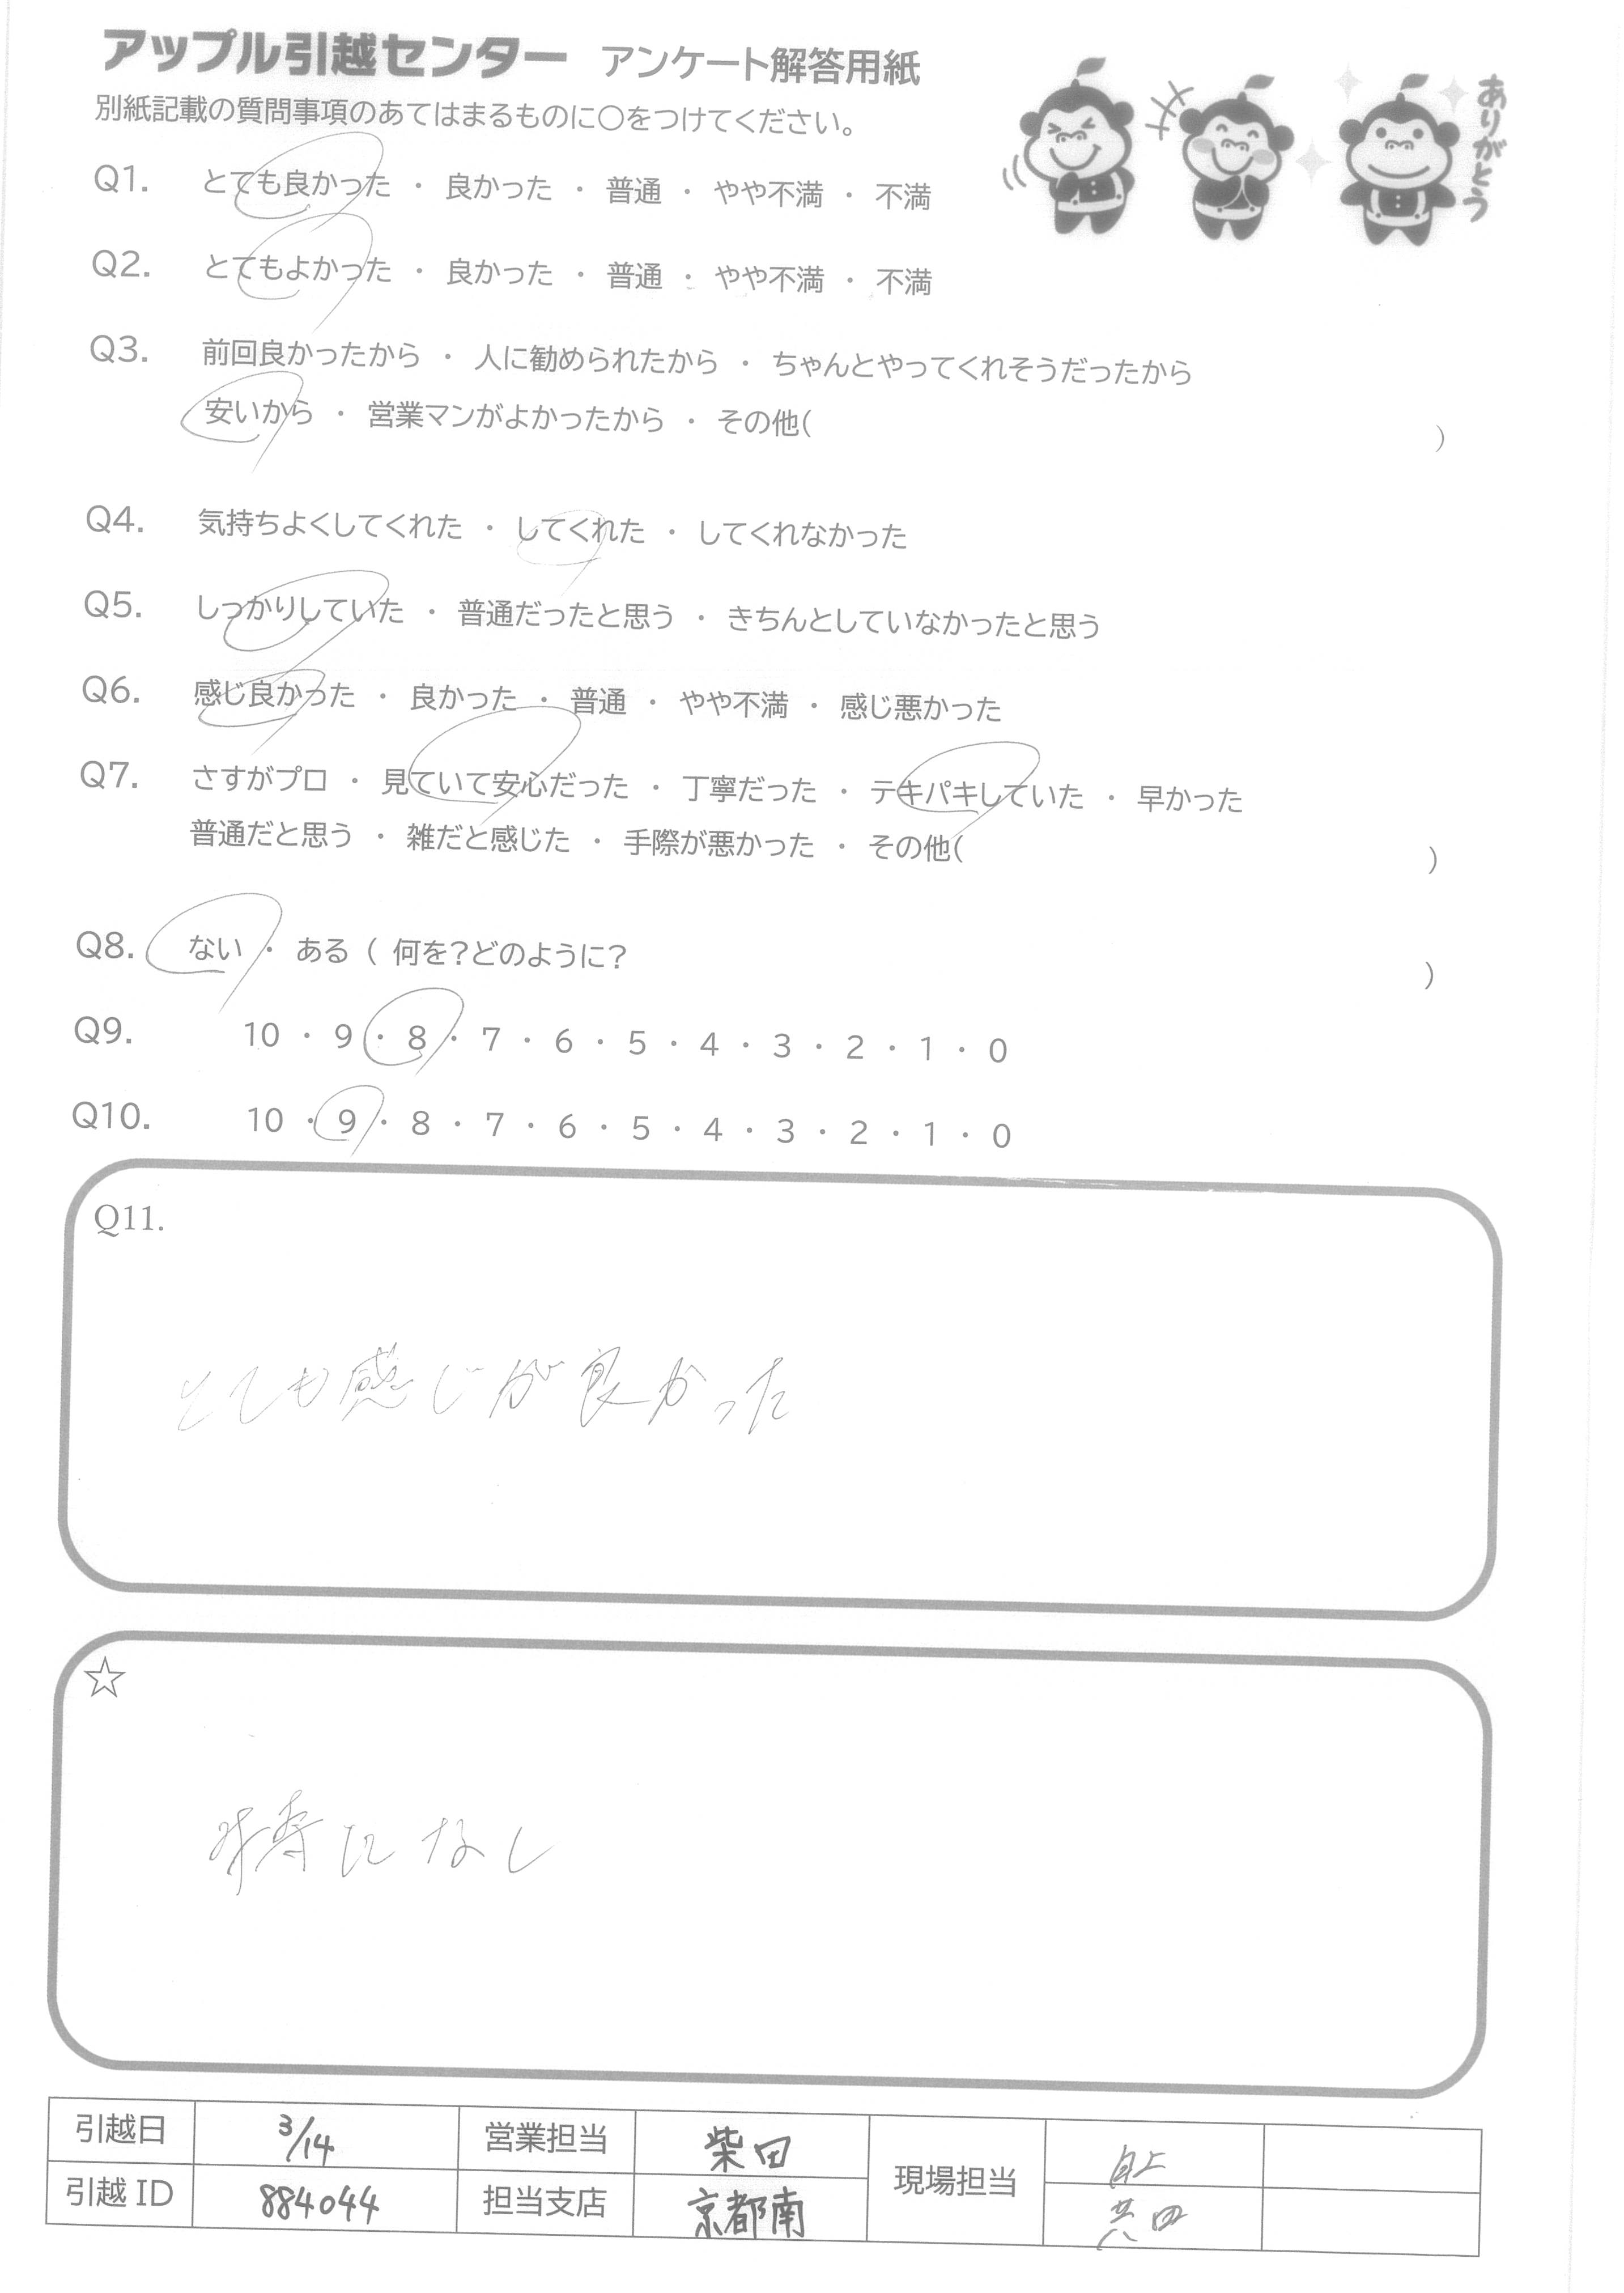 アップル引越センター アンケート解答用紙
別紙記載の質問事項のあてはまるものに○をつけてください。
ありがとう
Q1. とても良かった ・ 良かった ・ 普通 ・ やや不満 ・ 不満
Q2. とてもよかった ・ 良かった ・ 普通 ・ やや不満 ・ 不満
Q3. 前回良かったから ・ 人に勧められたから ・ ちゃんとやってくれそうだったから
安いから ・ 営業マンがよかったから ・ その他( )
Q4. 気持ちよくしてくれた ・ してくれた ・ してくれなかった
Q5. しっかりしていた ・ 普通だったと思う ・ きちんとしていなかったと思う
Q6. 感じ良かった ・ 良かった ・ 普通 ・ やや不満 ・ 感じ悪かった
Q7. さすがプロ ・ 見ていて安心だった ・ 丁寧だった ・ テキパキしていた ・ 早かった
普通だと思う ・ 雑だと感じた ・ 手際が悪かった ・ その他( )
Q8. ない ・ ある ( 何を?どのように? )
Q9. 10 ・ 9 ・ 8 ・ 7 ・ 6 ・ 5 ・ 4 ・ 3 ・ 2 ・ 1 ・ 0
Q10. 10 ・ 9 ・ 8 ・ 7 ・ 6 ・ 5 ・ 4 ・ 3 ・ 2 ・ 1 ・ 0
Q11.
とても感じが良かった
☆
特になし
引越日 3/14 営業担当 柴田 現場担当
引越ID 884044 担当支店 京都南